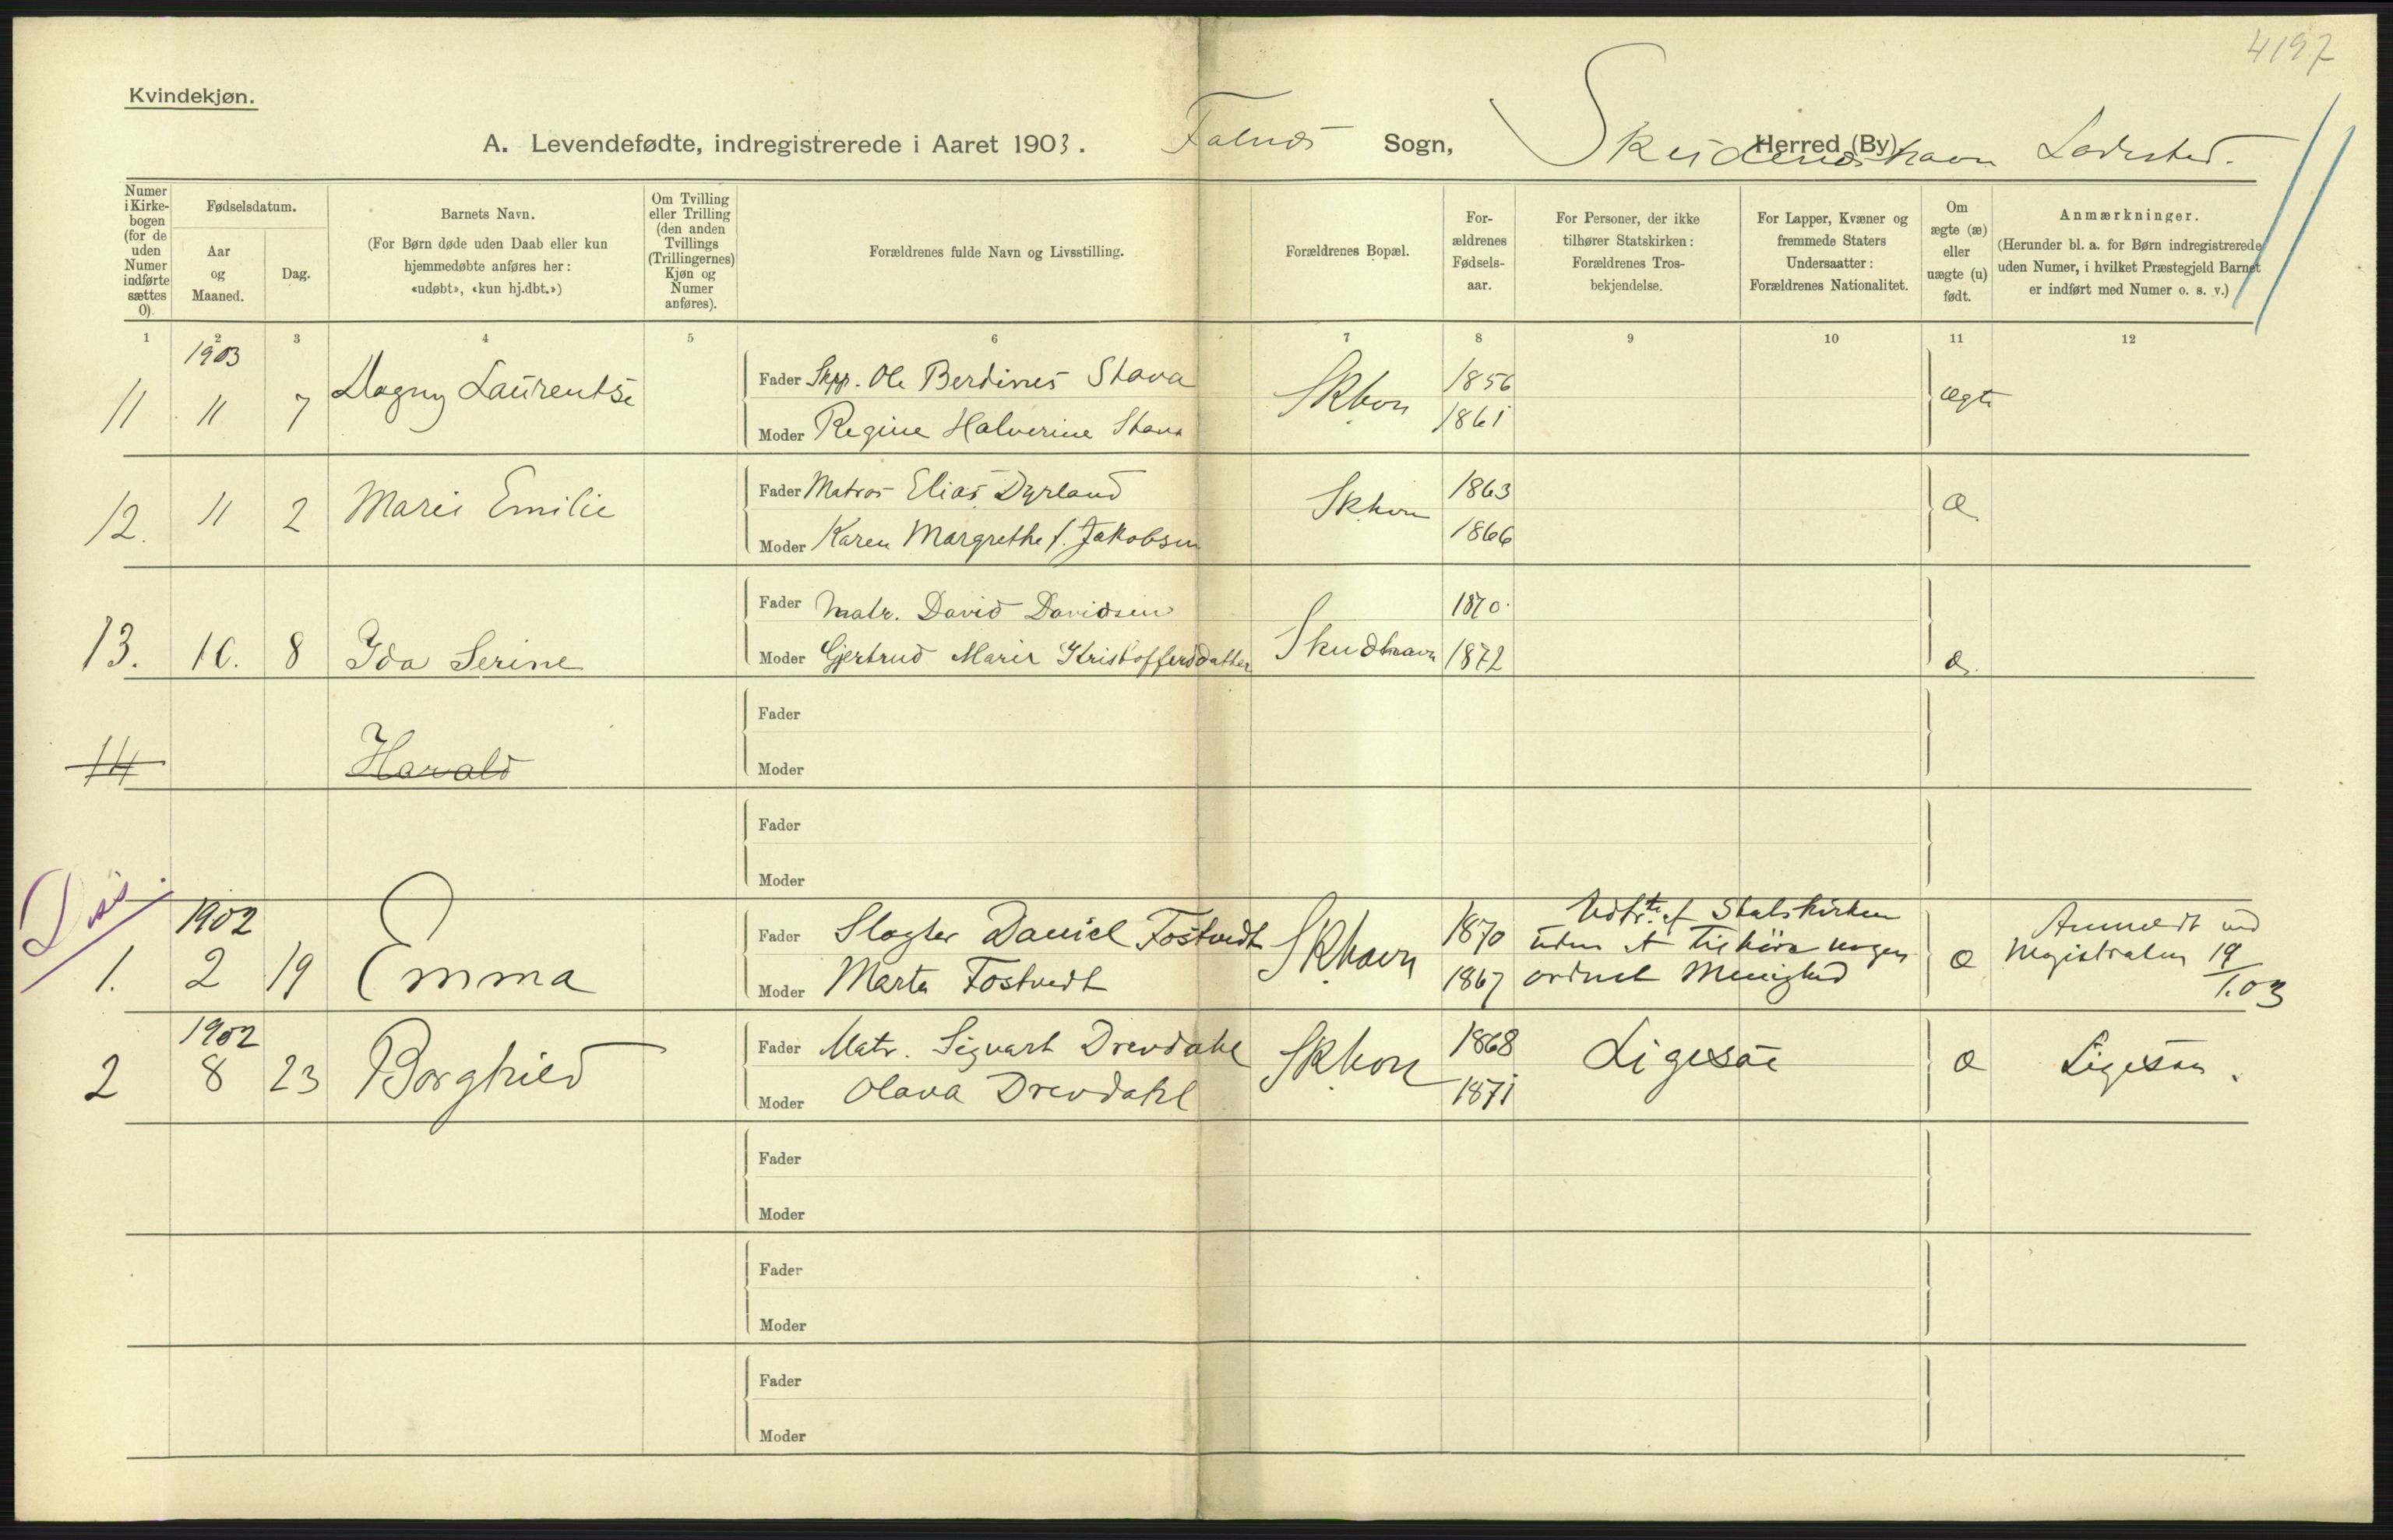 4197
Kvindekjøn.
A. Levendefødte, indregistrerede i Aaret 1903. Falnes Sogn, Skudeneshavn Herred (By) Ladested.
Numer i Kirke- bogen (for de uden Numer indførte sættes 0).
Fødselsdatum.
Aar og Maaned.
Dag.
Barnets Navn.
(For Børn døde uden Daab eller kun hjemmedøbte anføres her: «udøbt», «kun hj.dbt.»)
Om Tvilling eller Trilling (den anden Tvillings (Trillingernes) Kjøn og Numer anføres).
Forældrenes fulde Navn og Livsstilling.
Forældrenes Bopæl.
For- ældrenes Fødsels- aar.
For Personer, der ikke tilhører Statskirken: Forældrenes Tros- bekjendelse.
For Lapper, Kvæner og fremmede Staters Undersaatter: Forældrenes Nationalitet.
Om ægte (æ) eller uægte (u) født.
Anmærkninger.
(Herunder bl. a. for Børn indregistrerede uden Numer, i hvilket Præstegjeld Barnet er indført med Numer o. s. v.)
1 2 3 4 5 6 7 8 9 10 11 12
1903
11 11 7 Dagny Laurentse Fader Skpr. Ole Berdines Stava Skhvn 1856 ægte
Moder Regine Halverine Stava 1861
12. 11 2 Marie Emilie Fader Matros Elias Dyrland Skhvn 1863 æ
Moder Karen Margrethe f. Jakobsen 1866
13. 10. 8 Ida Serine Fader Matr. David Davidsen Skudhavn 1870. æ.
Moder Gjertrud Marie Kristoffersdatter 1872
14 Harald Fader
Moder
Fader
Moder
Diss.
1902
1. 2 19 Emma Fader Slagter Daniel Fostvedt Skhavn 1870 Udtr.te af Statskirken uden at tilhøre nogen ordnet Menighed æ Anmeldt ved Magistraten 19/1.03
Moder Marta Fostvedt 1867
1902
2 8 23 Borghild Fader Matr. Sigvart Drevdahl Skhvn 1868 Ligesaa æ Ligesaa.
Moder Olava Drevdahl 1871
Fader
Moder
Fader
Moder
Fader
Moder